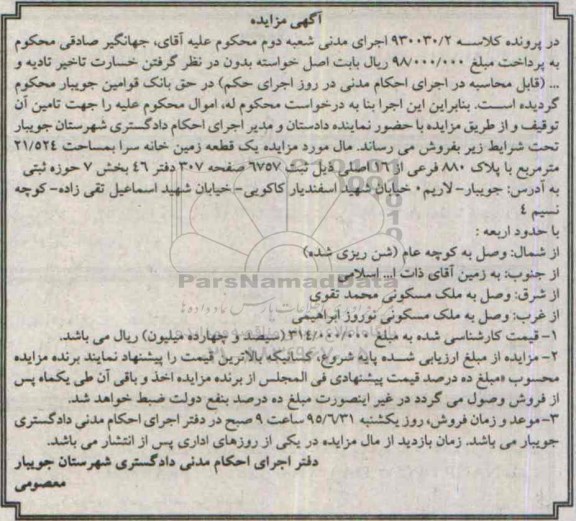 آگهی مزایده
در پرونده کلاسه ۹۳۰۰۳۰/۲ اجرای مدنی شعبه دوم محکوم علیه آقای، جهانگیر صادقی محکوم
به پرداخت مبلغ ۹۸/۰۰۰/۰۰۰ ریال بابت اصل خواسته بدون در نظر گرفتن خسارت تاخیر تادیه و
... (قابل محاسبه در اجرای احکام مدنی در روز اجرای حکم) در حق بانک قوامین جویبار محکوم
گردیده است. بنابراین این اجرا بنا به درخواست محکوم له، اموال محکوم علیه را جهت تامین آن
توقیف و از طریق مزایده با حضور نماینده دادستان و مدیر اجرای احکام دادگستری شهرستان جویبار
تحت شرایط زیر بفروش می رساند. مال مورد مزایده یک قطعه زمین خانه سرا بمساحت ۲۱/۵۲۴
مترمربع با پلاک ۸۸۰ فرعی از ۱۶ اصلی ذیل ثبت ۶۷۵۷ صفحه ۳۰۷ دفتر ۴۶ بخش ۷ حوزه ثبتی
به آدرس: جویبار- لاریم۰ خیابان شهید اسفندیار کاکویی- خیابان شهید اسماعیل تقی زاده- کوچه
نسیم ۴
با حدود اربعه :
از شمال: وصل به کوچه عام (شن ریزی شده)
از جنوب: به زمین آقای ذات ا... اسلامی
از شرق: وصل به ملک مسکونی محمد تقوی
از غرب: وصل به ملک مسکونی نوروز ابراهیمی
۱- قیمت کارشناسی شده به مبلغ ۳۱۴/۰۰۰/۰۰۰ (سیصد و چهارده میلیون) ریال می باشد.
۲- مزایده از مبلغ ارزیابی شده پایه شروع، کسانیکه بالاترین قیمت را پیشنهاد نمایند برنده مزایده
محسوب مبلغ ده درصد قیمت پیشنهادی فی المجلس از برنده مزایده اخذ و باقی آن طی یکماه پس
از فروش وصول می گردد در غیر اینصورت مبلغ ده درصد بنفع دولت ضبط خواهد شد.
۳- موعد و زمان فروش، روز یکشنبه ۹۵/۶/۳۱ ساعت ۹ صبح در دفتر اجرای احکام مدنی دادگستری
جویبار می باشد. زمان بازدید از مال مزایده در یکی از روزهای اداری پس از انتشار می باشد.
دفتر اجرای احکام مدنی دادگستری شهرستان جویبار
معصومی
ParsNamadData